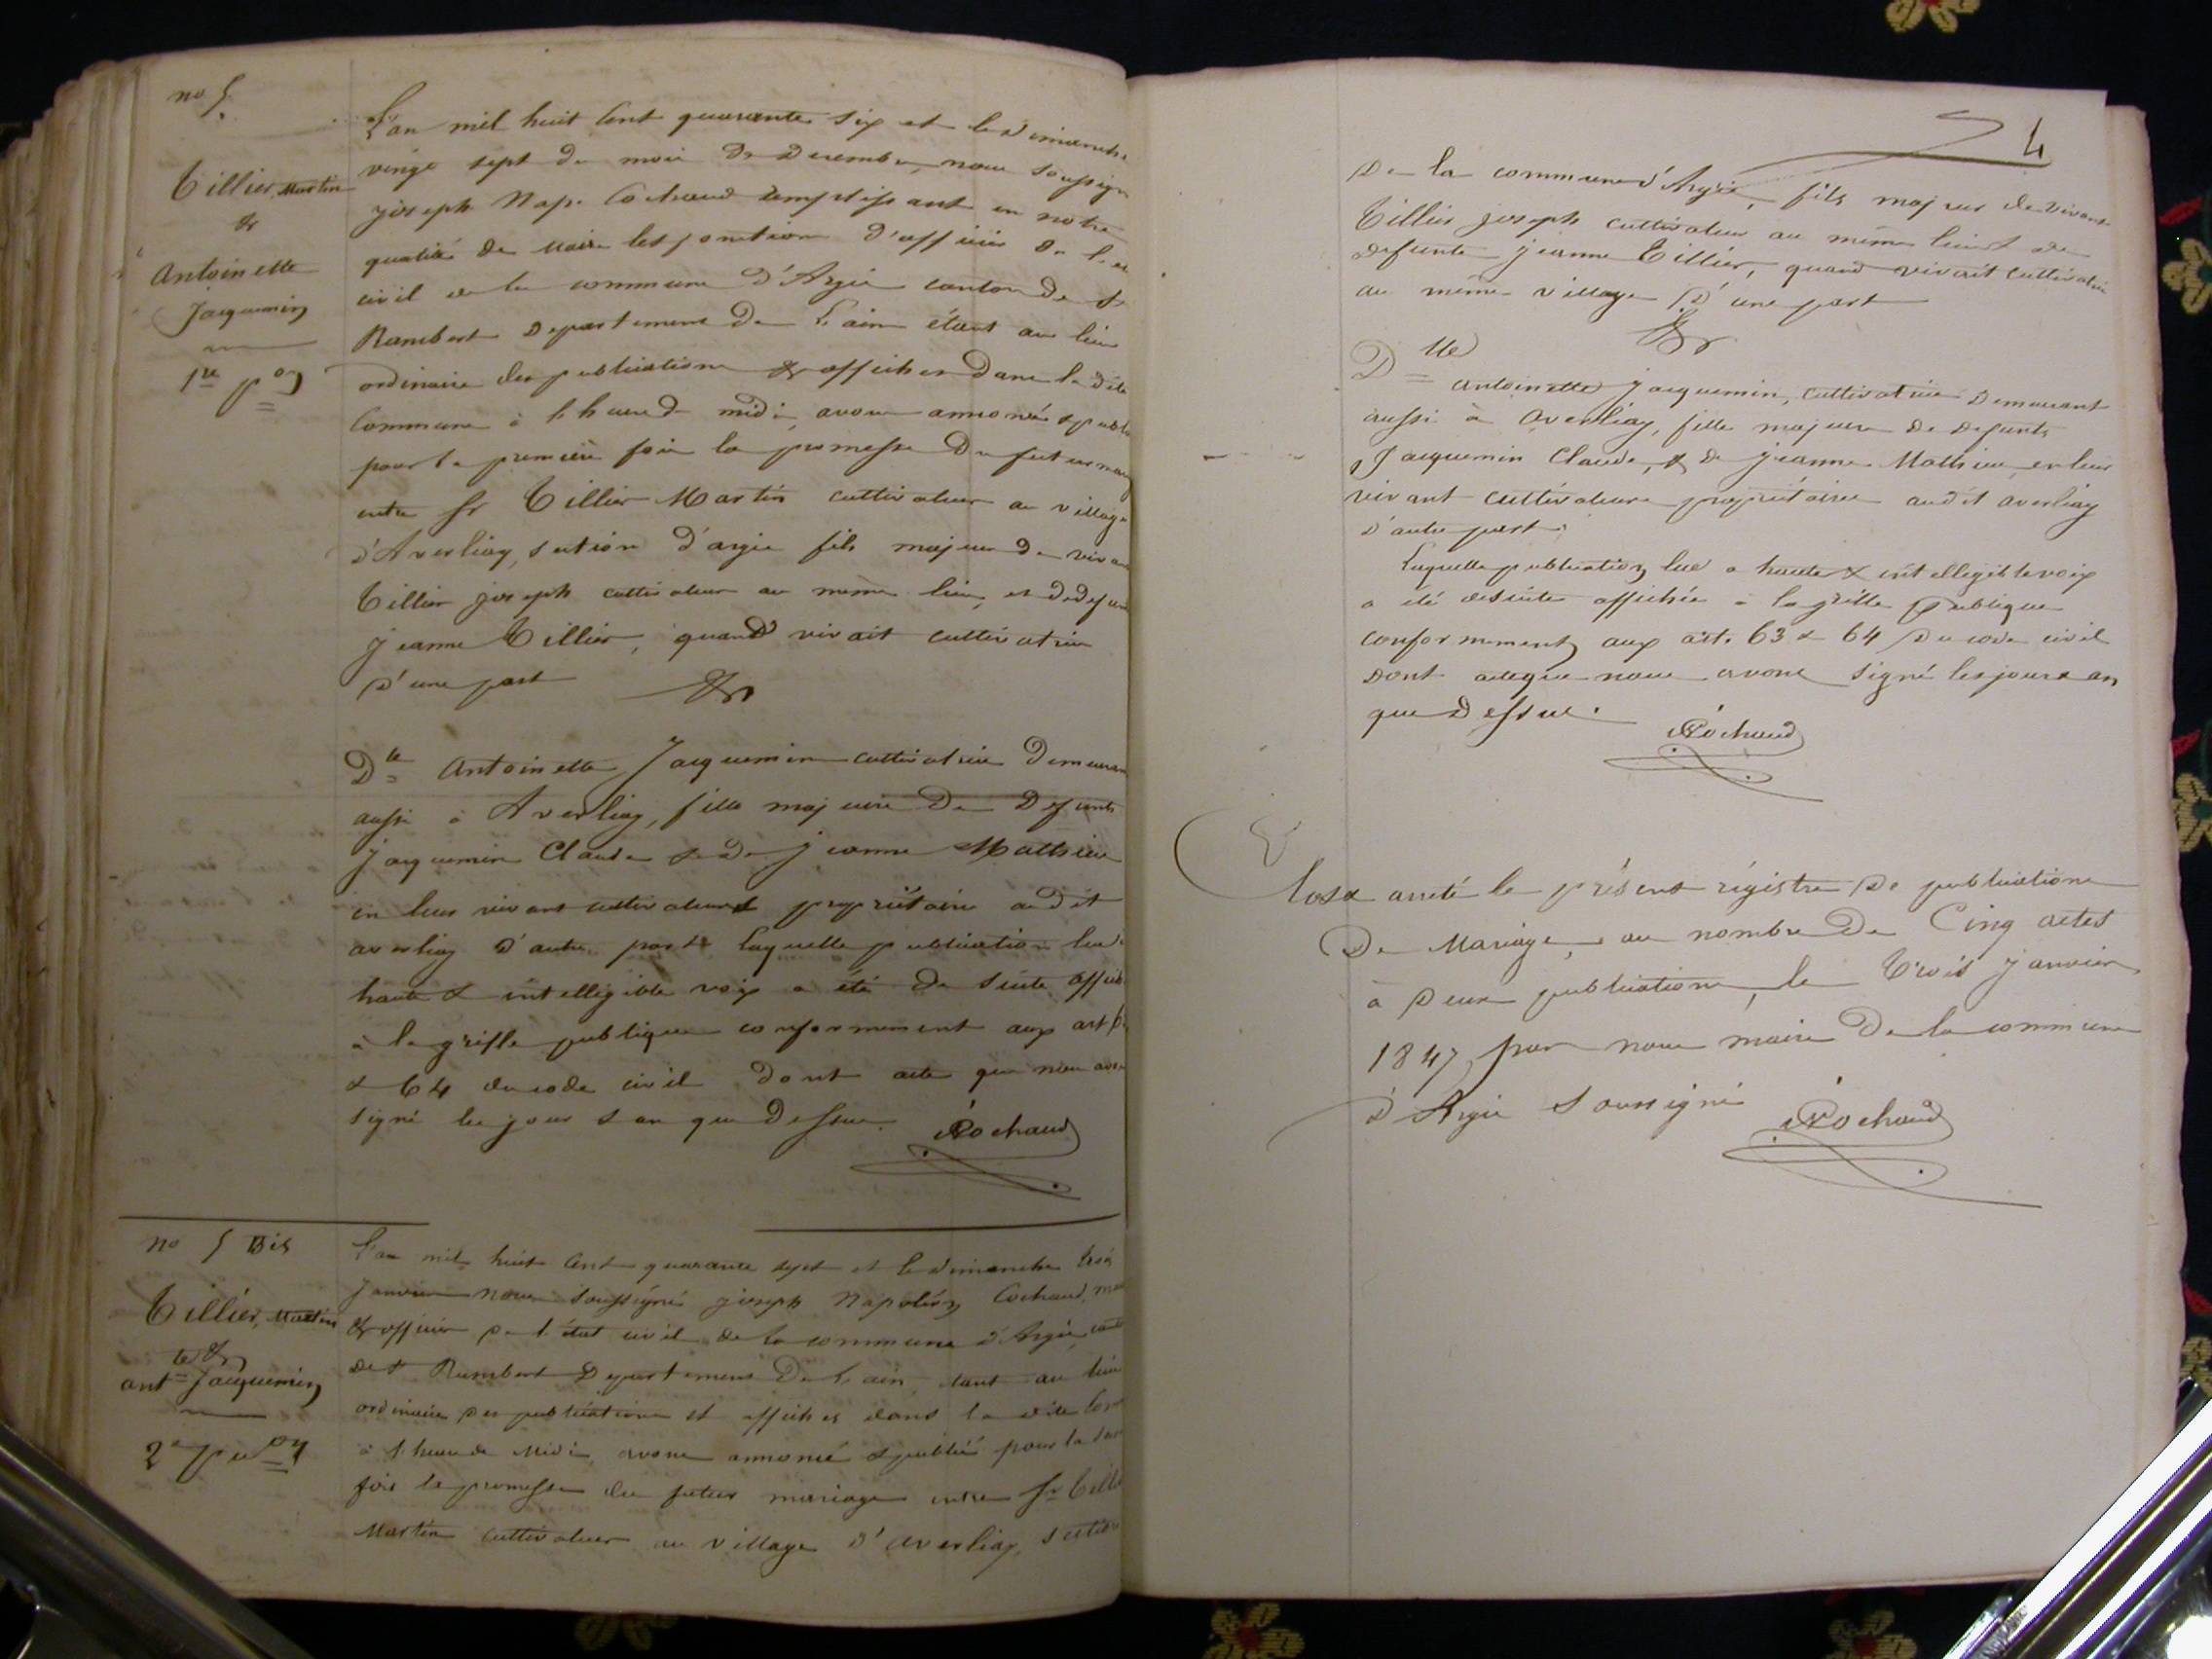 no 5.
Tillier, Martin
&
Antoinette
Jacquemin
1re pon
L'an mil huit cent quarante six et le dimanche
vingt sept du mois de Decembre, nous soussign
joseph Nap. Cochaud remplissant en notre
qualité de Maire les fonction d'officier de l'et
civil de la commune d'Argis canton de St
Rambert Departement de L'ain étant au lieu
ordinaire des publications & affiches dans la dite
Commune à l'heure de midi, avons annoncé & publ
pour la première fois la promesse du futur mar
entre Sr Tillier Martin cultivateur au village
d'Averliaz, section d'argis fils majeur de vivan
Tillier joseph cultivateur au même lieu, et de defun
jeanne Tillier, quand vivait cultivatrice
d'une part &
Dlle Antoinette Jacquemin cultivatrice demeuran
aussi à Averliaz, fille majeure de Defunts
Jacquemin Claude & de jeanne Mathieu
en leur vivant cultivateurs propriétaire audit
averliaz d'autre part Laquelle publication lue
haute & intelligible voix a été de suite affich
à la griffe publique conformement aux art 6
& 64 du code civil dont acte que nous avon
signé les jour & an que Dessus. Cochaud
no 5 Bis
Tillier, Martin
&
antte Jacquemin
2e puon
L'an mil huit cent quarante sept et le dimanche trois
Janvier nous soussigné joseph Napoléon Cochaud, mai
& officier de l'état civil de la commune d'Argis, cant
de St Rambert Departement De L'ain, étant au lieu
ordinaire des publications et affiches dans la dite Com
à l'heure de Midi, avons annoncé & publié pour la
fois la promesse du futur mariage entre Sr Tilli
Martin cultivateur au village d'averliaz, section
4
De la commune d'Argis, fils majeur de vivant
Tillier joseph cultivateur au même lieu & de
defunte jeanne Tillier, quand vivait cultivatrice
au même village D'une part
&
Dlle antoinette jacquemin, cultivatrice Demeurant
aussi à averliaz, fille majeure de defunts
Jacquemin Claude, & de jeanne Mathieu, en leur
vivant cultivateurs propriétaires audit averliaz
d'autre part;
Laquelle publication lue a haute & intelligible voix
a été desuite affichée à la griffe publique
conformement aux art. 63 & 64 du code civil
Dont acte que nous avons signé les jour & an
que Dessus. Cochaud
Clos & arrêté le présent régistre de publications
De Mariage, au nombre de Cinq actes
à deux publications, le trois janvier
1847, par nous maire de la commune
d'Argis soussigné Cochaud